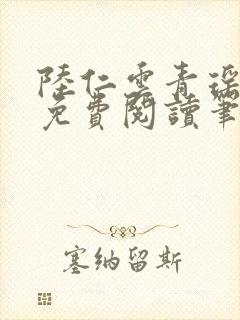 陸仁雲青瑶
免費閱讀筆
塞納留斯